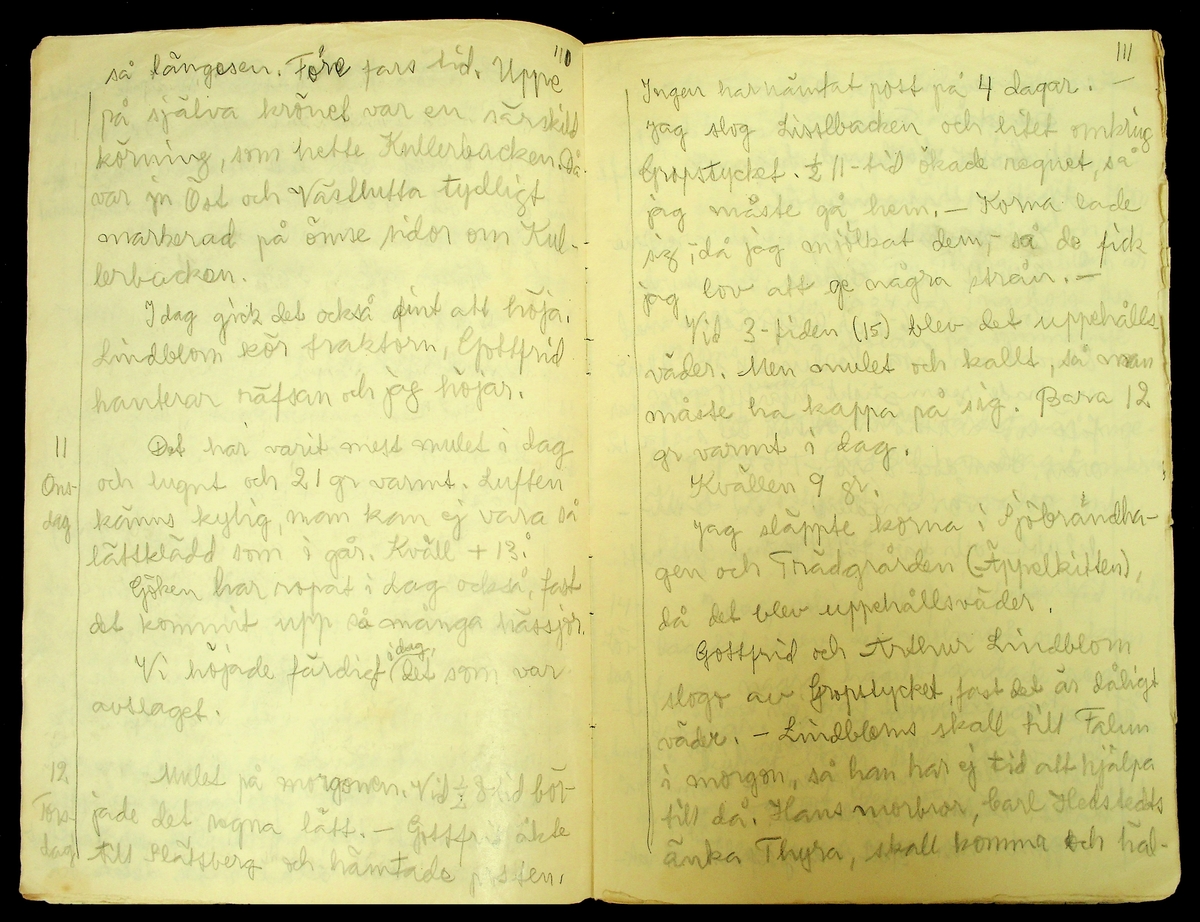 110
så längesen. Före fars tid. Uppe
på själva krönet var en särskild
körning, som hette Kullerbacken. Då
var ju Öst och Västlutta tydligt
markerad på ömse sidor om Kul-
lerbacken.
I dag gick det också fint att höja.
Lindblom kör traktorn, Gottfrid
hanterar räfsan och jag höjar.
11
Ons-
dag
Det har varit mest mulet i dag
och lugnt och 21 gr varmt. Luften
känns kylig, man kan ej vara så
lättklädd som i går. Kväll + 13.°
Göken har ropat i dag också, fast
det kommit upp så många hässjor.
Vi höjade färdigt i dag, det som var
avslaget.
12
Tors-
dag
Mulet på morgonen. Vid ½ 8-tid bör-
jade det regna lätt. – Gottfrid åkte
till Slätsberg och hämtade posten.
111
Ingen har hämtat post på 4 dagar. –
Jag slog Lisslbacken och litet omkring
Gropstycket. ½ 11-tid ökade regnet, så
jag måste gå hem. – Korna lade
sig, då jag mjölkat dem, – så de fick
jag lov att ge några strån. –
Vid 3-tiden (15) blev det uppehålls
väder. Men mulet och kallt, så man
måste ha kappa på sig. Bara 12
gr varmt i dag.
Kvällen 9 gr.
Jag släppte korna i Sjöbrändha-
gen och Trädgården (Äppelkitten),
då det blev uppehållsväder.
Gottfrid och Arthur Lindblom
slogo av Gropstycket, fast det är dåligt
väder. – Lindbloms skall till Falun
i morgon, så han har ej tid att hjälpa
till då. Hans morbror, Carl Hedstedts
änka Thyra, skall komma och häl-